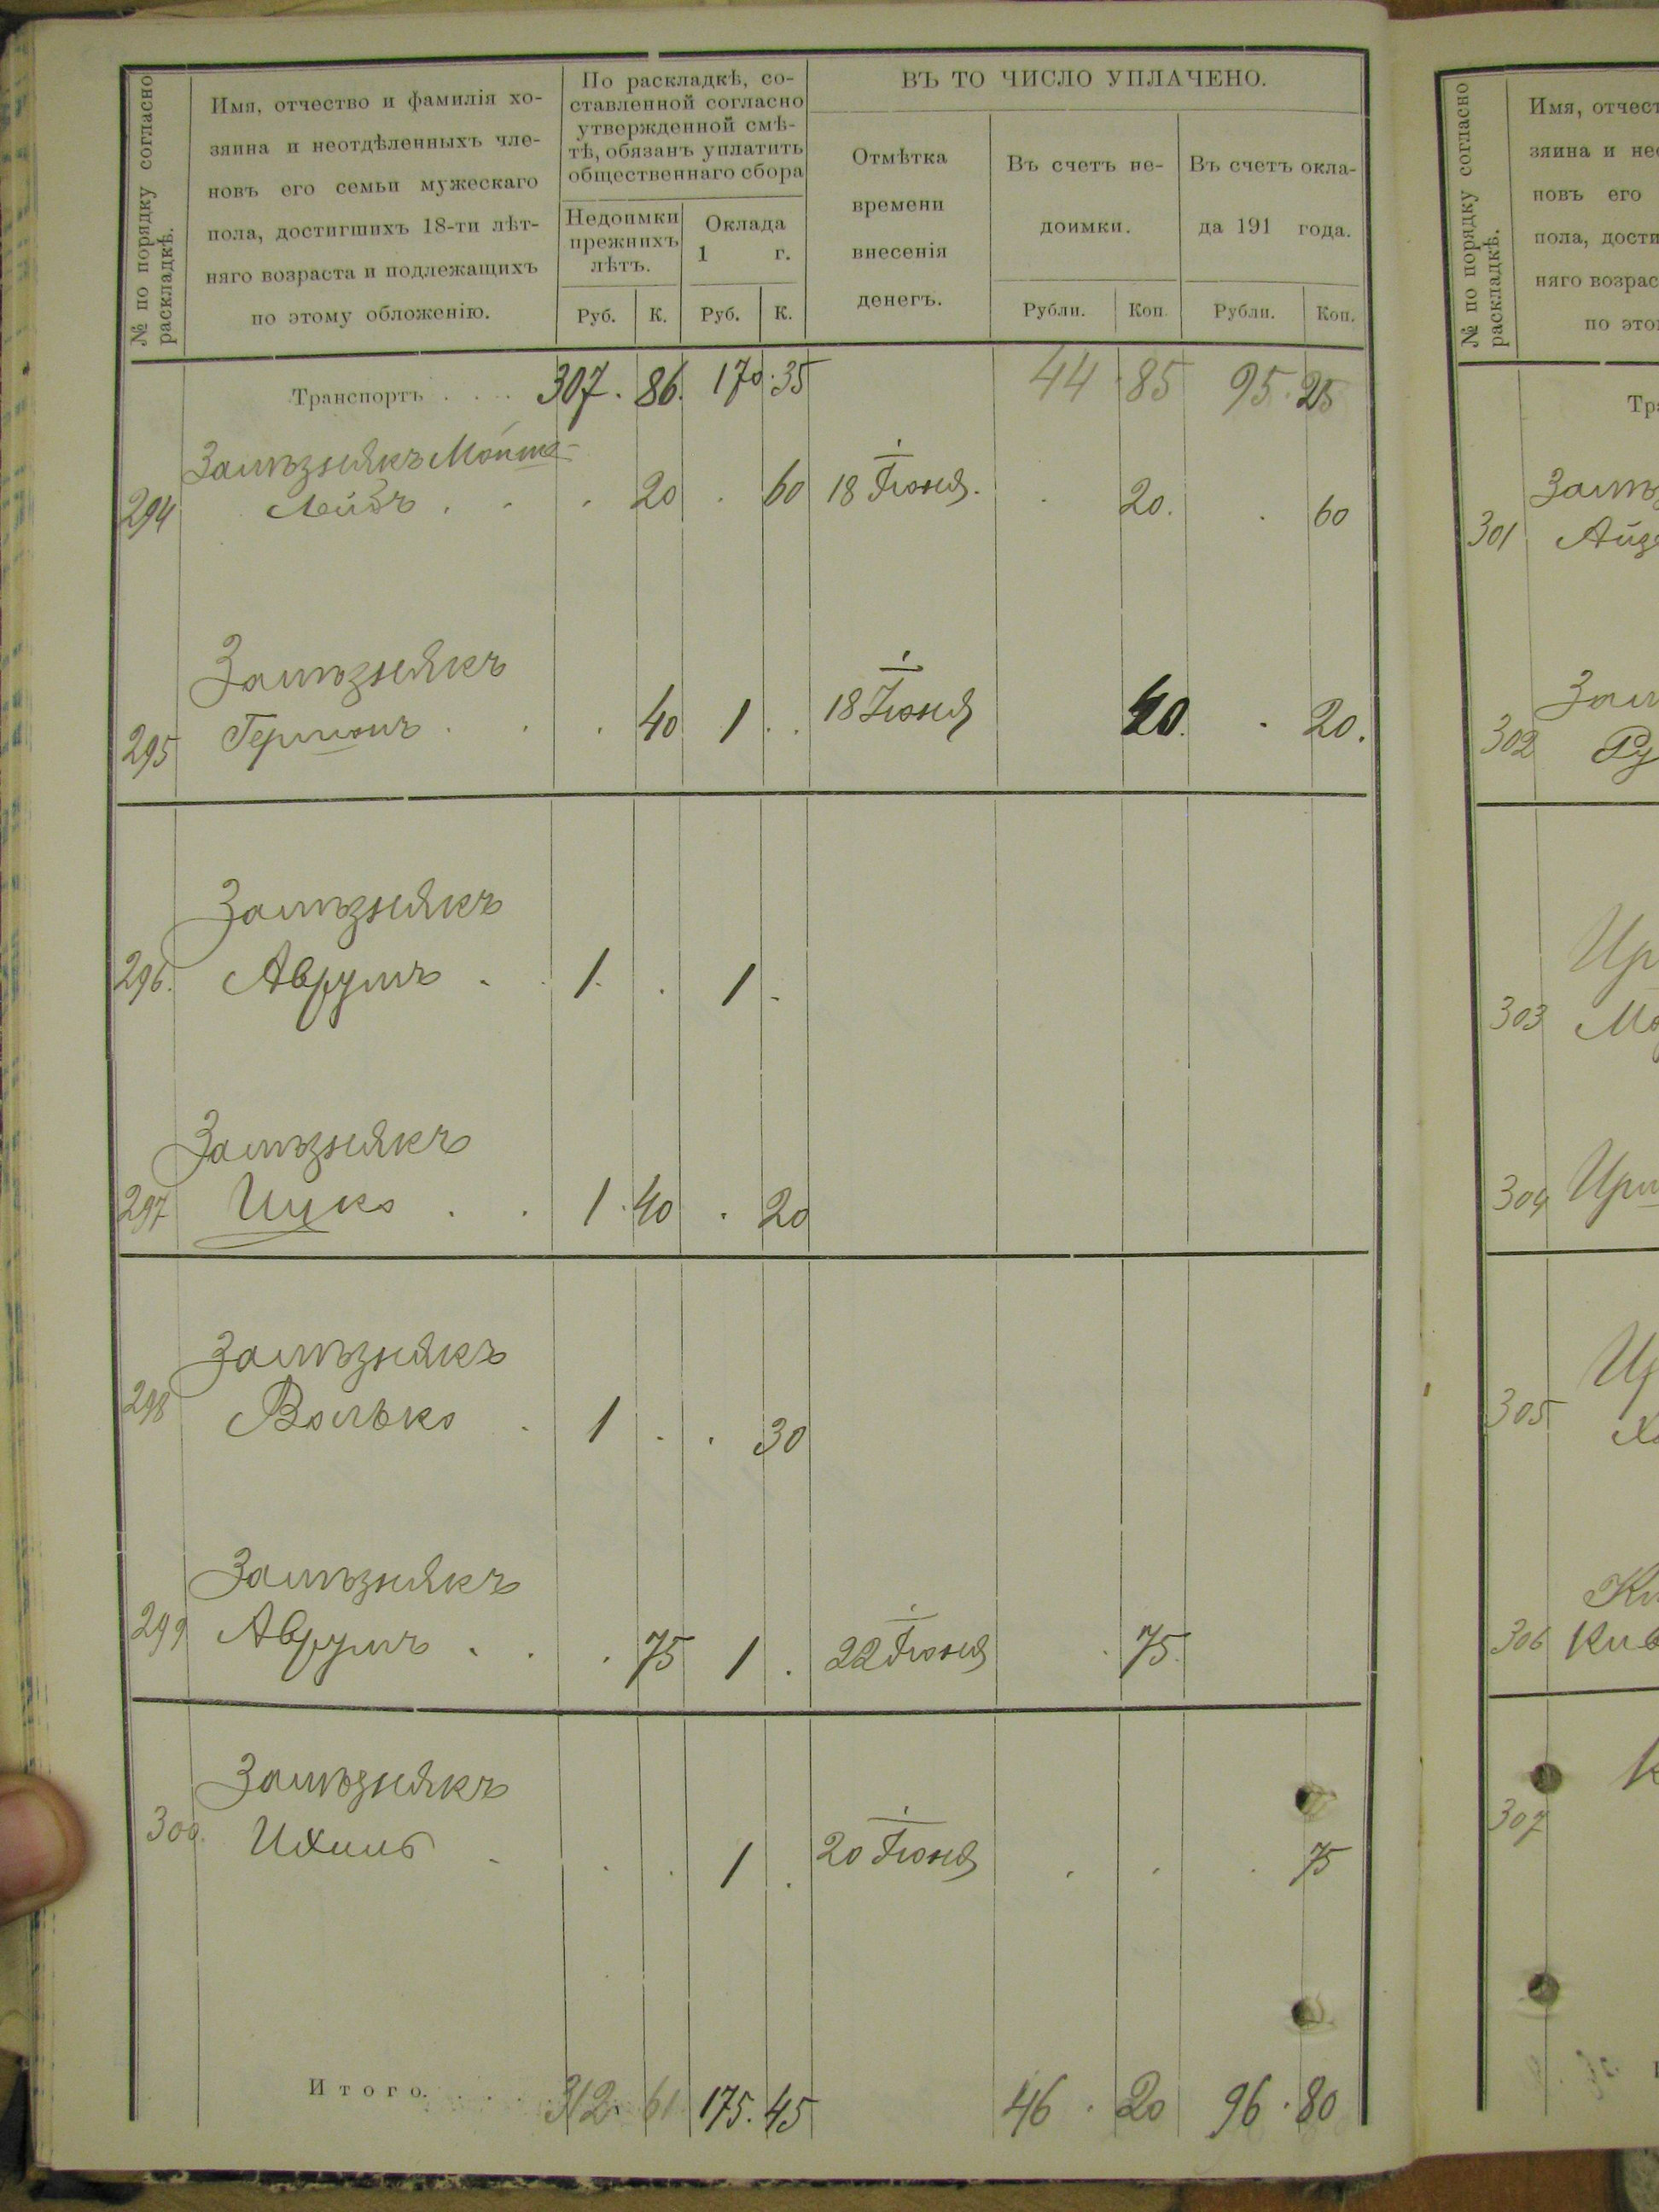 № по порядку согласно
раскладкѣ.
Имя, отчество и фамилія хо-
зяина и неотдѣленныхъ чле-
новъ его семьи мужескаго
пола, достигшихъ 18-ти лѣт-
няго возраста и подлежащихъ
по этому обложенію.
По раскладкѣ, со-
ставленной согласно
утвержденной смѣ-
тѣ, обязанъ уплатить
общественнаго сбора
Недоимки
прежнихъ
лѣтъ.
Оклада
1 г.
Руб. К. Руб. К.
ВЪ ТО ЧИСЛО УПЛАЧЕНО.
Отмѣтка
времени
внесенія
денегъ.
Въ счетъ не-
доимки.
Въ счетъ окла-
да 191 года.
Рубли. Коп. Рубли. Коп.
Транспортъ . . . 307. 86. 170. 35 44. 85 95. 25
Залѣзнякъ
294 Лейбъ . . . 20 . 60 18 Іюня. . 20. . 60
Залѣзнякъ
295 Гершонъ . . . 40 1 . . 18 Іюня 40. . 20.
Залѣзнякъ
296. Аврумъ . . 1. . 1 .
Залѣзнякъ
297 Ицко . . 1. 40 . 20
Залѣзнякъ
298 Волько . 1 . . 30
Залѣзнякъ
299 Аврумъ . . . 75 1 . 22 Іюня . 75.
Залѣзнякъ
300. Ихиль . . . 1 . 20 Іюня . . . 75
Итого. . . . 312. 61 175. 45 46. 20 96. 80
№ по порядку согласно
раскладкѣ.
Имя, отчест
зяина и не
новъ его
пола, дости
няго возрас
по это
301
302
303
304
305
306
307